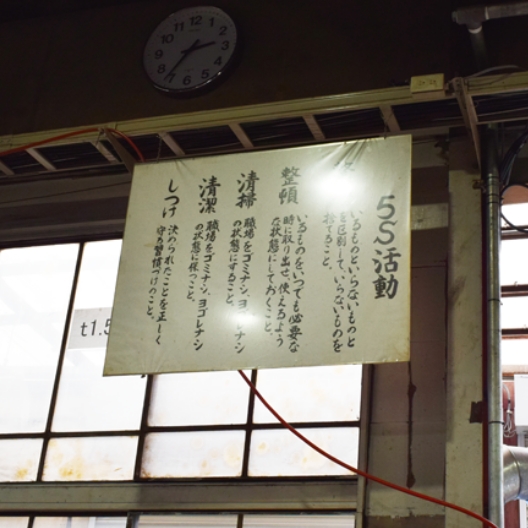 5S活動
いるものといらないものと
を区別して、いらないものを
捨てること。
整頓
いるものをいつでも必要な
時に取り出せ、使えるよう
な状態にしておくこと。
清掃
職場をゴミナシ、ヨゴレナシ
の状態にすること。
清潔
職場をゴミナシ、ヨゴレナシ
の状態に保つこと。
しつけ
決められたことを正しく
守る習慣づけのこと。
t1.5
12
1
2
3
4
5
6
7
8
9
10
11